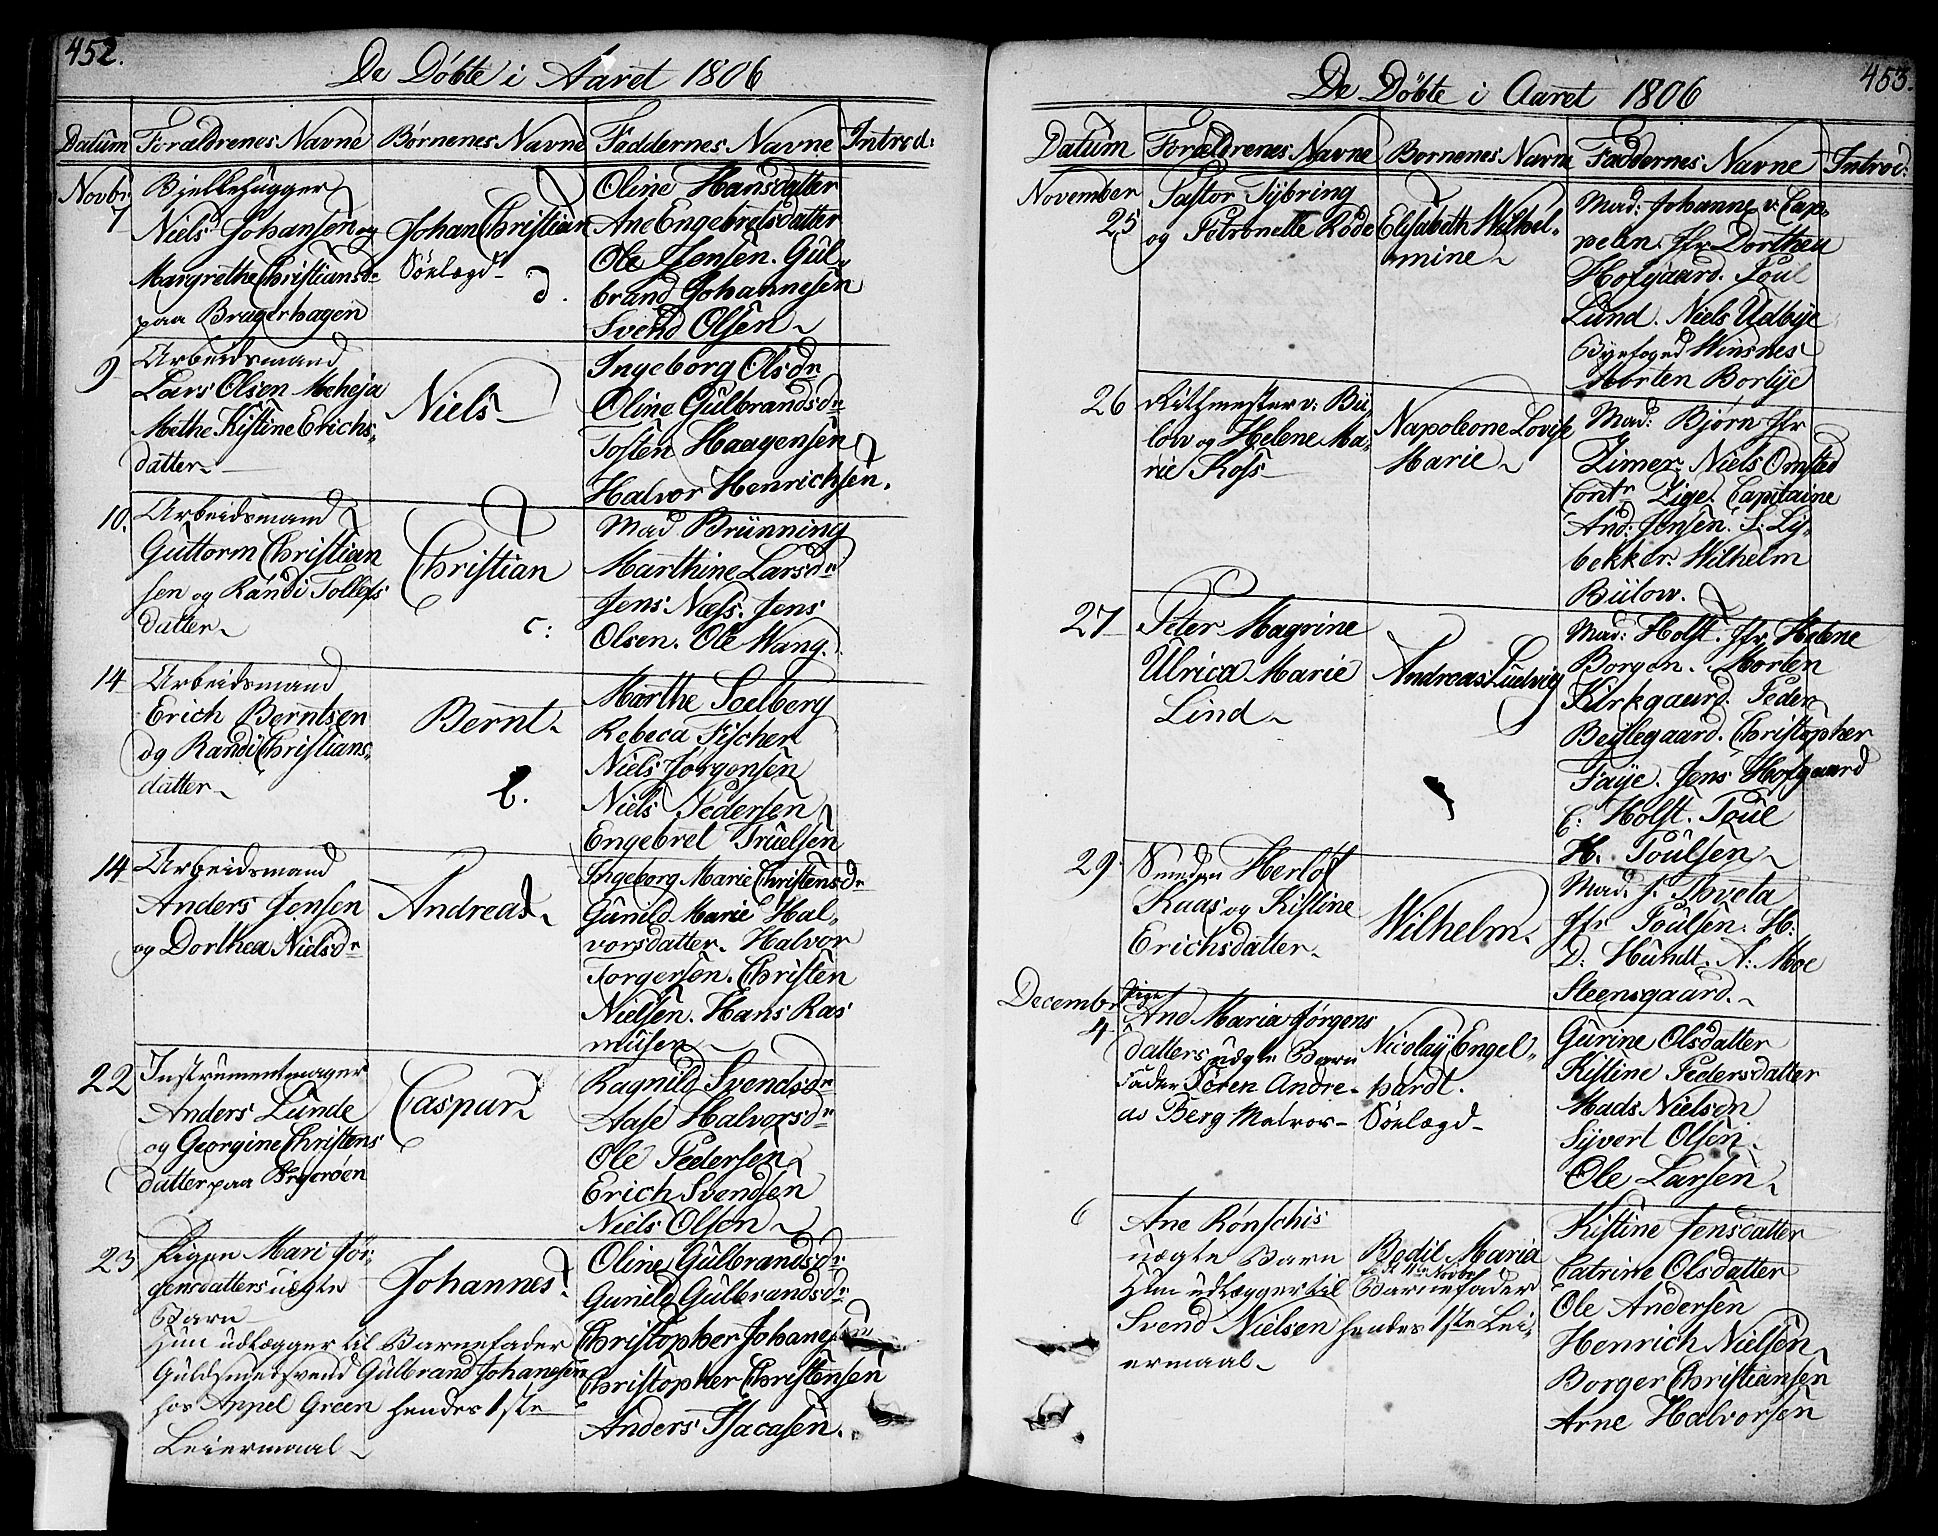 452.
De Döbte i Aaret 1806
Datum Forældrenes Navne Börnenes Navne Faddernes Navne Introd:
Novbr:
7
Bjelkehugger
Niels Johansen og
Margrethe Christiansdr
paa Bragerhagen
Johan Christian
Sönlægd
d.
Oline Hansdatter
Ane Engebretsdatter
Ole Jensen. Gul-
brand Johannesen
Svend Olsen
9
Arbeidsmand
Lars Olsen Meheja
Methe Kistine Erichs-
datter
Niels
Ingeborg Olsdr
Oline Gulbrandsdr
Tosten Haagensen
Halvor Henrichsen.
10.
Arbeidsmand
Guttorm Christian
sen og Randi Tollefs
datter
Christian
c:
Mad Brünning
Marthine Larsdr
Jens Næss. Jens
Olsen. Ole Wang.
14
Arbeidsmand
Erich Berntsen
og Randi Christians-
datter
Bernt
l.
Marthe Soelberg
Rebeca Fischer
Niels Jörgensen
Niels Pedersen
Engebret Truelsen
14
Arbeidsmand
Anders Jensen
og Dorthea Nielsdr
Andreas
Ingeborg Marie Christensdr
Gunild Marie Hal-
vorsdatter. Halvor
Torgersen. Christen
Nielsen. Hans Ras
musen
22
Instrumentmager
Anders Lunde
og Georgine Christens
datter paa
Caspar
Ragnild Svendsdr
Aase Halvorsdr
Ole Pedersen
Erich Svendsen
Niels Olsen
23
Pigen Mari Jör-
gensdatters uægte
Barn
Hun udlægger til Barnefader
Guldsmedsvend Gulbrand Johanesen
hos Appel Green hendes 1ste
Leiermaal
Johannes.
Oline Gulbrandsdr
Gunild Gulbrandsdr
Christopher Johanesen
Christopher Christensen
Anders Isacasen.
453.
De Döbte i Aaret 1806
Datum Forældrenes Navne Bornenes Navne Faddernes Navne Introd:
November
25
Pastor Tybring
og Petronelle Rode
Elisabeth Wilhel-
mine
Mad: Johanne v: Cap-
pelen. Jfr Dorthea
Hofgaard. Poul
Lund. Niels Udbye
Byefoged Winsnes
Morten Borlye
26
Ritmester v: Bü-
low og Helene Ma-
rie Koss
Napoleone Lovise
Marie
Mad: Bjørn Jfr
Zimer. Niels Omsted
Contr Zige. Capitaine
And: Jensen. S: Ly-
bekker. Wilhelm
Bülow.
27
Peter Magrine
Ulrica Marie
Lind
Andreas Ludvig
Mad: Holst. Jfr Helene
Borgen. Morten
Kirkgaard. Peder
Beylegaard. Christopher
Faye. Jens Hofgaard
C: Holst. Poul
H. Poulsen
29
Herlof
Kaas og Kistine
Erichsdatter
Wilhelm.
Mad. J. Thveta
Jfr Poulsen. H:
D: Hundt. A: Moe
Steensgaard.
December
4
Pige
Ane Maria Jörgens
datters uægte Barn
Fader Sören Andre-
as Berg Matros
Nicolay Engel-
hardt.
Sönlægd
Gurine Olsdatter
Kistine Pedersdatter
Mads Nielsen
Syvert Olsen
Ole Larsen
6
Ane Rönschis
uægte Barn
Hun udlægger til Barnefader
Svend Nielsen hendes 1ste Lei-
ermaal
Bodil Maria
Kistine Jensdatter
Catrine Olsdatter
Ole Andersen
Henrich Nielsen
Borger Christiansen
Arne Halvorsen